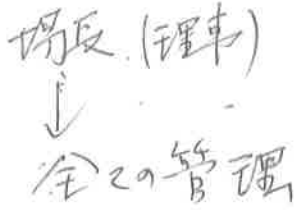 場長(理事)
↓
全ての管理